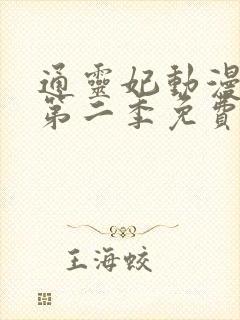 通靈妃動漫
第二季免費
王海蛟